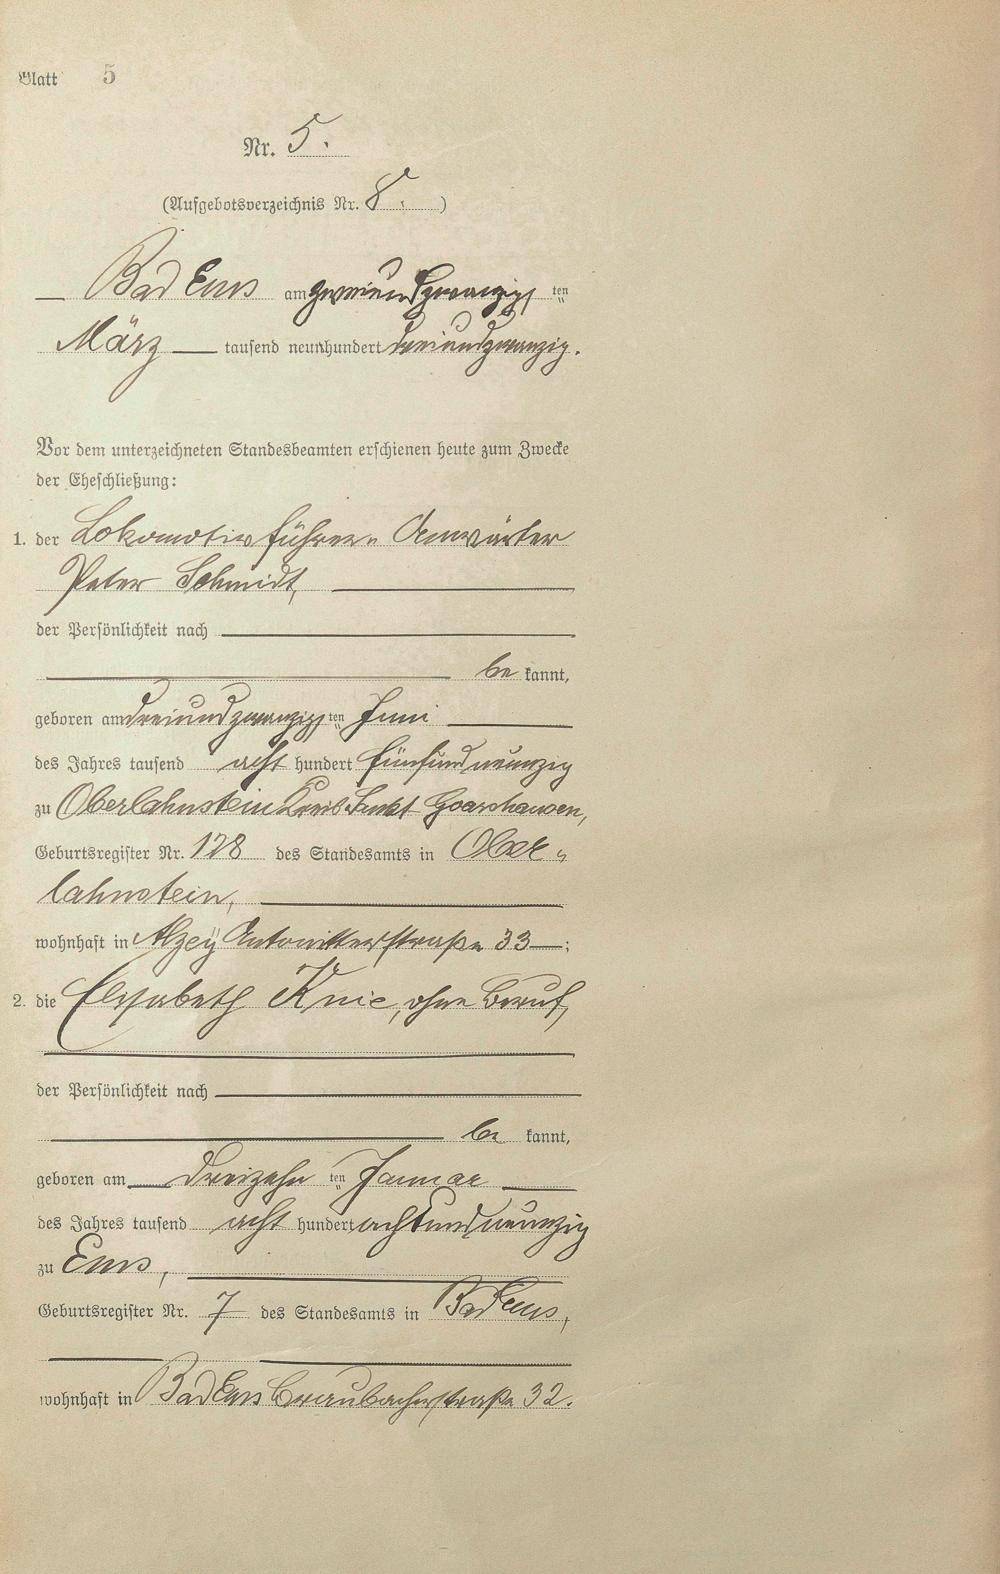 Blatt 5
Nr. 5.
(Aufgebotsverzeichnis Nr. 8.)
Bad Ems am zweiundzwanzigten
März tausend neunhundert dreiundzwanzig.
Vor dem unterzeichneten Standesbeamten erschienen heute zum Zwecke
der Eheschließung:
1. der Lokomotivführer-Anwärter
Peter Schmidt,
der Persönlichkeit nach
be kannt,
geboren am dreiundzwanzigsten Juni
des Jahres tausend acht hundert fünfundneunzig
zu Oberlahnstein Kreis Sankt Goarshausen,
Geburtsregister Nr. 128 des Standesamts in Ober-
lahnstein,
wohnhaft in Alzey Antonitterstraße 33;
2. die Elisabeth Knie, ohne Beruf,
der Persönlichkeit nach
be kannt,
geboren am dreizehn ten Januar
des Jahres tausend acht hundert achtundneunzig
zu Ems,
Geburtsregister Nr. 7 des Standesamts in Bad Ems,
wohnhaft in Bad Ems Braubacherstraße 32.